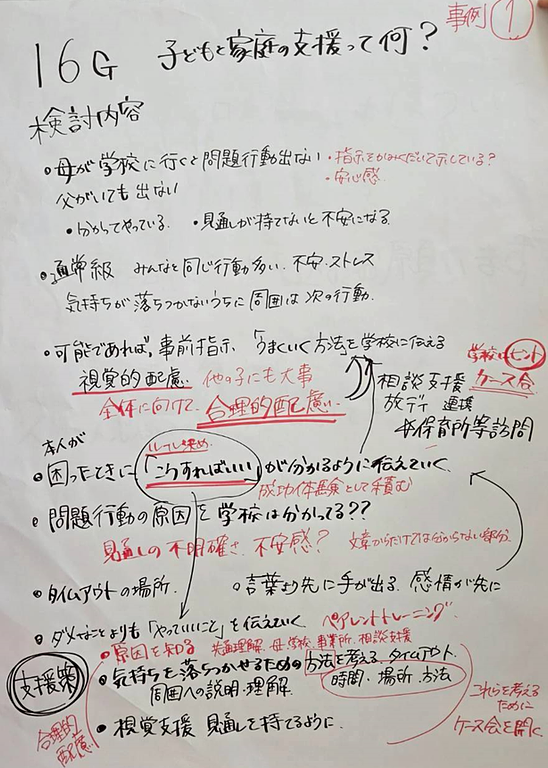 事例①
16G 子どもと家庭の支援って何？
検討内容
・母が学校に行くと問題行動出ない ・指示をかみくだいて示している？
父がいても出ない ・安心感
・分かってやっている ・見通しが持てないと不安になる
・通常級 みんなと同じ行動多い。不安・ストレス
気持ちが落ちつかないうちに周囲は次の行動
・可能であれば、事前指示 「うまくいく方法」を学校に伝える
学校にヒント
視覚的配慮 他の子にも大事
相談支援 ケース会
全体に向けて 合理的配慮
放デイ 連携
保育所等訪問
本人が
ルール決め
・困ったときに「こうすればいい」が分かるように伝えていく
成功体験として積む
・問題行動の原因を学校は分かってる？？
見通しの不明確さ、不安感？ 文章からだけでは分からない部分
・タイムアウトの場所 ・言葉より先に手が出る 感情が先に
・ダメなことよりも「やっていいこと」を伝えていく ペアレントトレーニング
・原因を知る 共通理解 母・学校・事業所・相談支援
支援策
・気持ちを落ちつかせるための方法を考える タイムアウト
周囲への説明・理解 時間・場所・方法
合理的配慮
これらを考えるために
ケース会を開く
・視覚支援 見通しを持てるように